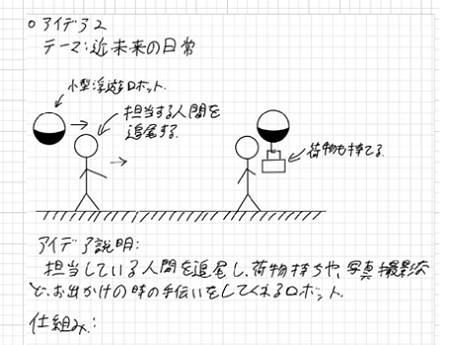 ○アイデア2
テーマ:近未来の日常
小型浮遊ロボット.
担当する人間を
追尾する.
荷物も持てる.
アイデア説明:
担当している人間を追尾し、荷物持ちや、写真撮影な
ど、お出かけの時の手伝いをしてくれるロボット.
仕組み: